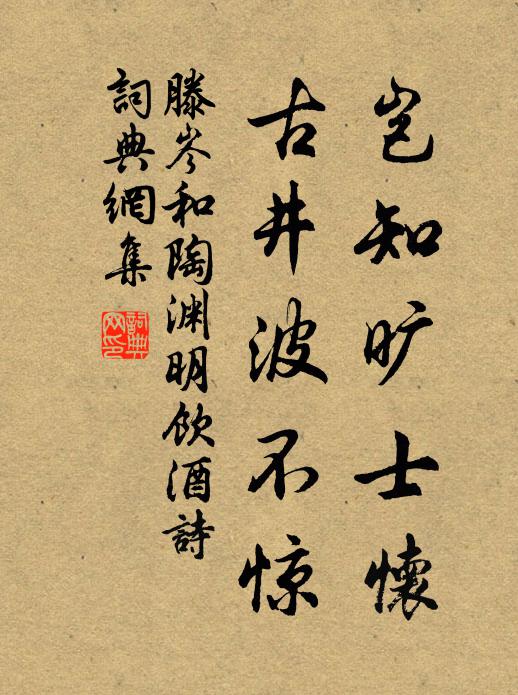 岂知旷士懷
古井波不惊
滕岑和陶渊明饮酒詩
詞典網集
詞典网印